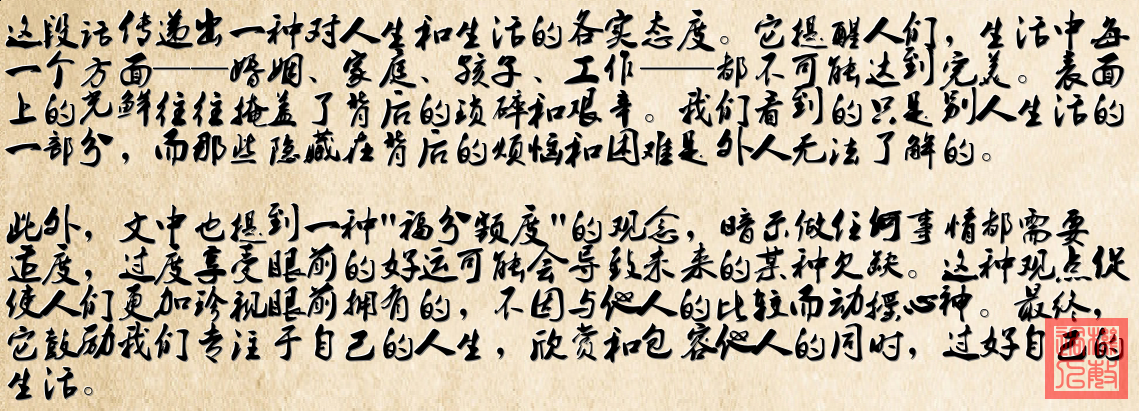 这段话传递出一种对人生和生活的务实态度。它提醒人们，生活中每
一个方面——婚姻、家庭、孩子、工作——都不可能达到完美。表面
上的光鲜往往掩盖了背后的琐碎和艰辛。我们看到的只是别人生活的
一部分，而那些隐藏在背后的烦恼和困难是外人无法了解的。
此外，文中也提到一种"福分额度"的观念，暗示做任何事情都需要
适度，过度享受眼前的好运可能会导致未来的某种欠缺。这种观点促
使人们更加珍视眼前拥有的，不因与他人的比较而动摇心神。最终，
它鼓励我们专注于自己的人生，欣赏和包容他人的同时，过好自己的
生活。